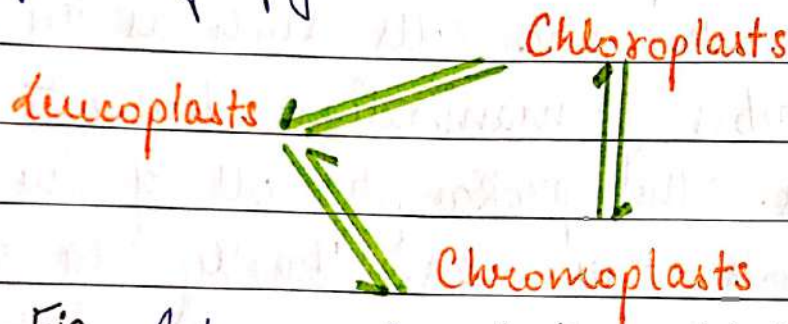 Chloroplasts
Leucoplasts
Chromoplasts